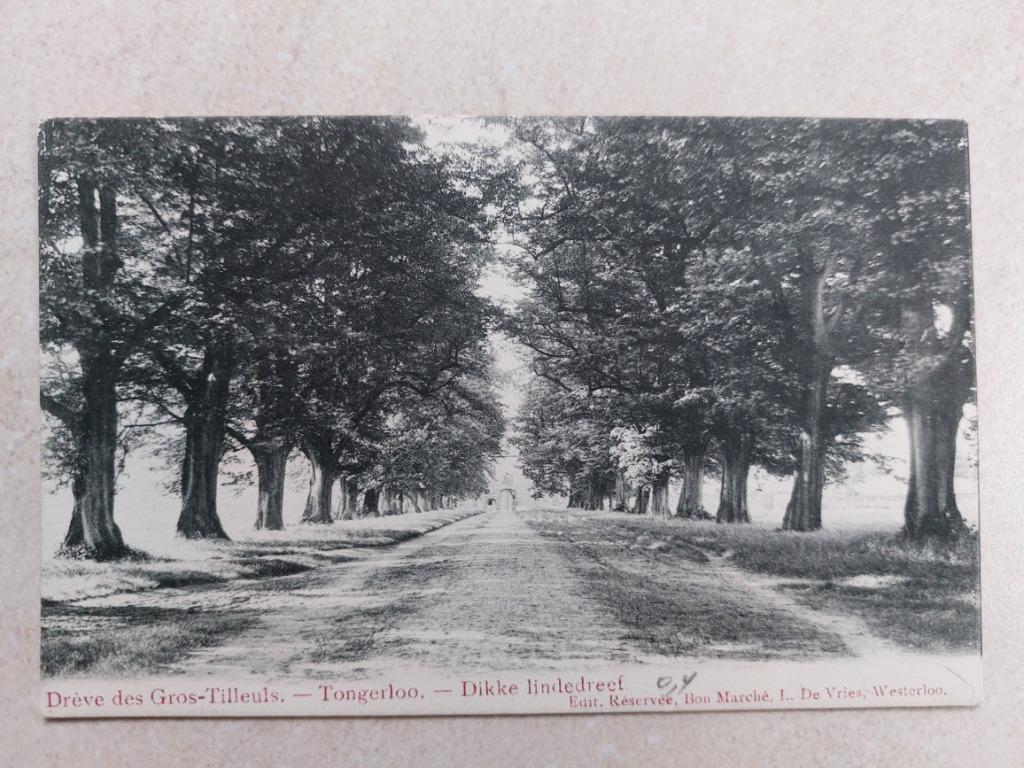 Drève des Gros-Tilleuls. — Tongerloo. — Dikke lindedreef.
Edit. Réservée, Bon Marché, L. De Vries, Westerloo.